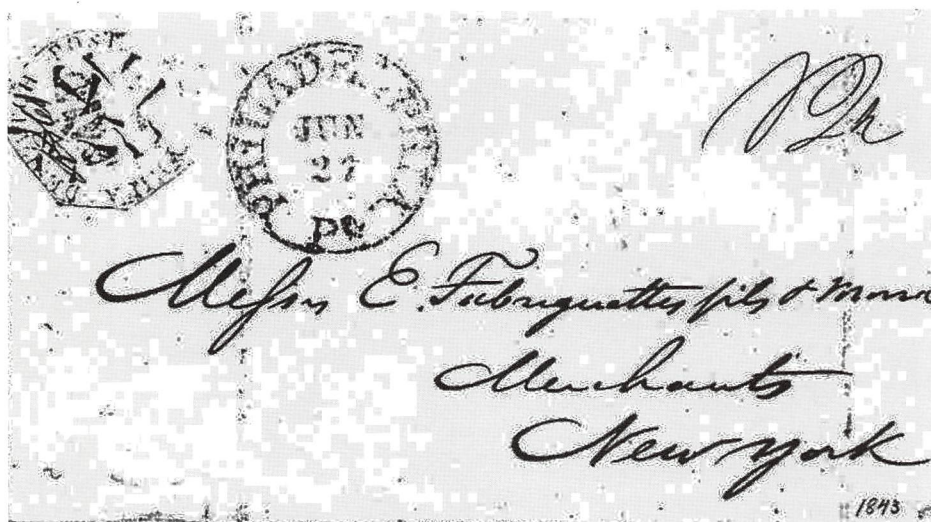 POST
PHILADELPHIA
JUN
27
Pa
Messrs E. Fabreguettes fils &
Merchants
New York
1843